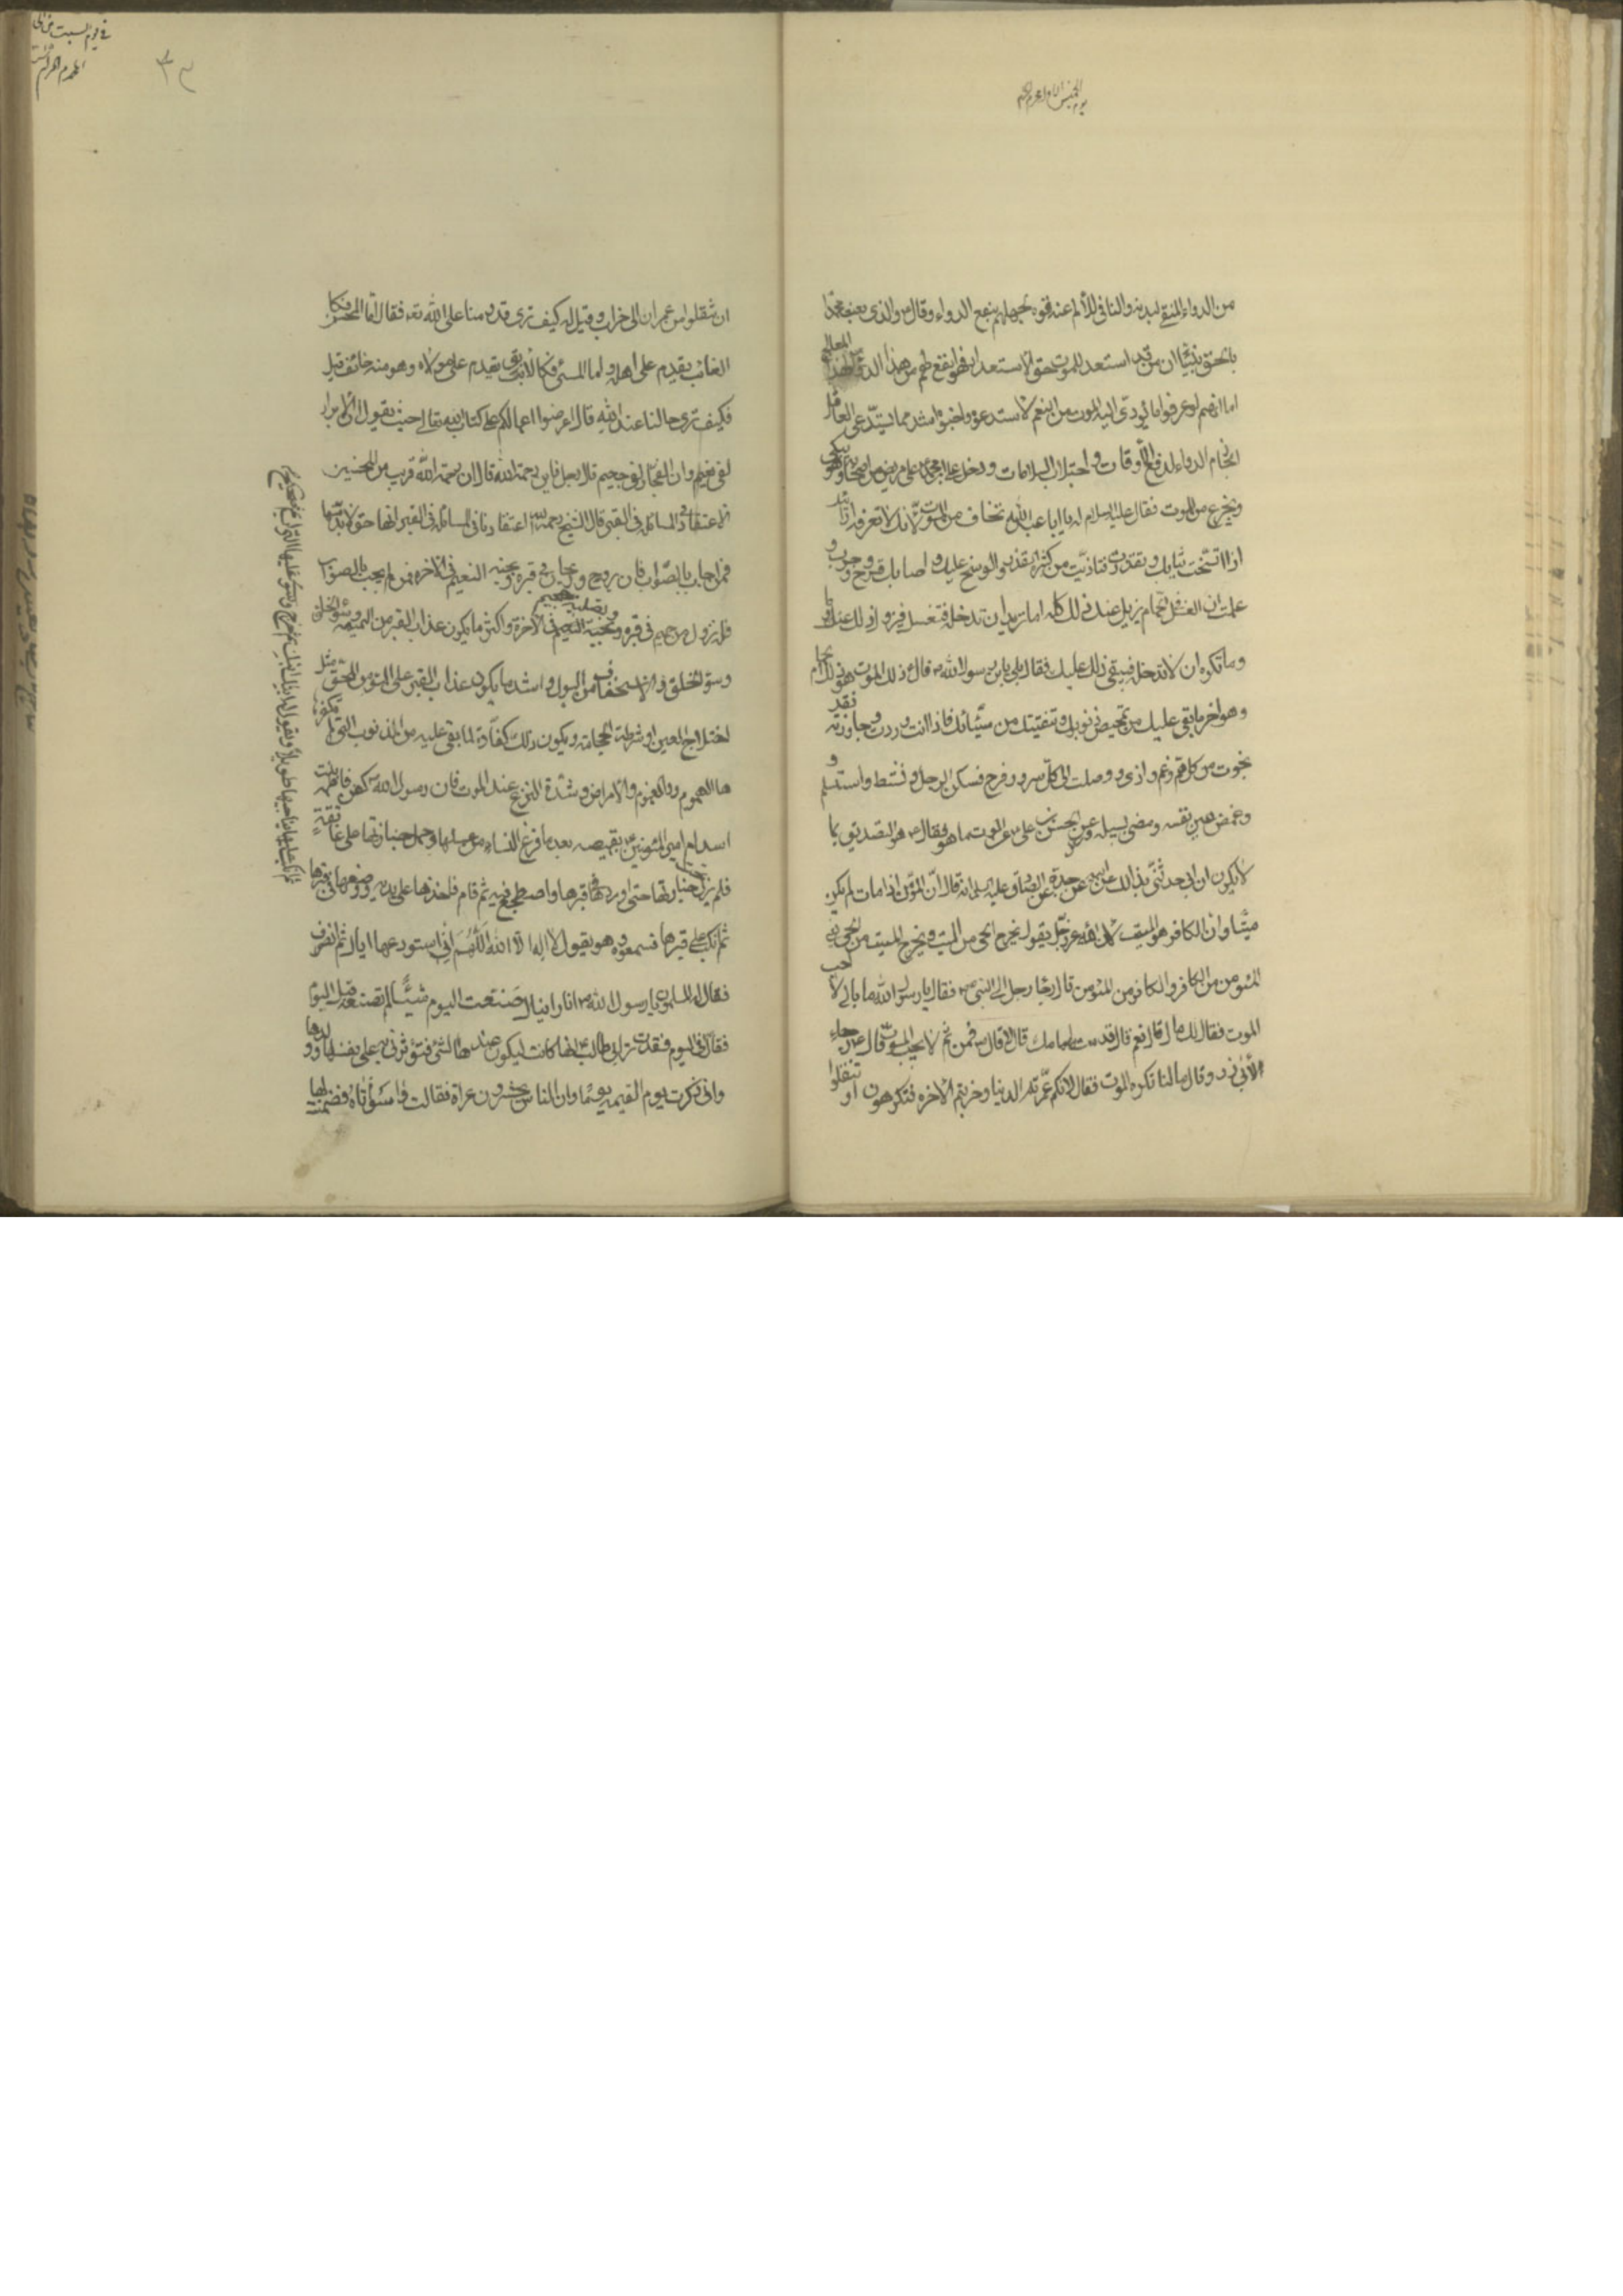 من الدواء المنقى لبدنه والنافى للألم عنه قوه لجهلهم بنفع الدواء وقال ص والذى بعث محمدا
بالحق نبيّا ان من قد استعد للموت حق الاستعداد فهو انفع لهم من هذا الدواء لهذا المعالج
اما انهم لو عرفوا ما يؤدى اليه الموت من النعم لاستدعوه واحبوه اشد مما يستدعى العاقل
الحازم الدواء لدفع الآفات واجتلاب السلامات ودخل على بن محمد ع على مريض من اصحابه وهو يبكى
ويجزع من الموت فقال عليه السلام له يا ابا عبد الله تخاف من الموت لانك لا تعرفه ارايتك
اذا اتسخت ثيابك وتقذرت وتاذيت من كثرة القذر والوسخ عليك واصابك قروح وجرب و
علمت ان الغسل فى حمام يزيل عنك ذلك كله اما تريد ان تدخله فتغسل فيزول ذلك عنك او
وما تكره ان لا تدخله فيبقى ذلك عليك فقال بلى يابن رسول الله ص قال ع ذلك الموت هو ذلك الحمام
وهو اخر ما بقى عليك من تمحيص ذنوبك وتنقيتك من سيّئاتك فاذا انت وردت وجاوزته فقد
نجوت من كل هم وغم واذى ووصلت الى كلّ سرور وفرح فسكن الرجل ونشط واستسلم و
وغمض عين نفسه ومضى لسبيله وسئل الحسن بن على ع عن الموت ما هو فقال ع هو التصديق بما
لا يكون ان ابى حدثنى بذالك عن ابيه عن جده عن الصادق عليه السلام انه قال انّ المؤمن اذا مات لم يكن
ميّتا وان الكافر هو الميّت ان الله عزوجل يقول يخرج الحى من الميت ويخرج الميت من الحى يعنى
المؤمن من الكافر والكافر من المؤمن قال وجاء رجل الى النبى ص فقال يا رسول الله ما بالى لا احب
الموت فقال الك مال قال نعم قال قدمت مالك امامك قال لا قال ص فمن ثم لا تحب الموت قال وجاء رجل
الى ابى ذر وقال ما لنا نكره الموت فقال لانكم عمّرتم الدنيا وخربتم الاخره فتكرهون ان تنقلوا
ان تنقلوا من عمران الى خراب وقيل له كيف ترى قدومنا على الله تعه فقال اما المحسن فكا
الغائب يقدم على اهله واما المسئ فكالآبق يقدم على مولاه وهو منه خائف قيل
فكيف ترى حالنا عند الله قال اعرضوا اعمالكم على كتاب الله تعالى حيث يقول ان الابرار
لفى نعيم وان الفجار لفى جحيم قال الرجل فاين رحمة الله قال ان رحمة الله قريب من المحسنين
الاعتقاد فى المسائلة فى القبر قال الشيخ رحمه الله اعتقادنا فى المسائلة فى القبر انها حق لا بد منها
فمن اجاب بالصواب فان بروح وريحان فى قبره وبجنه النعيم فى الاخره ومن لم يجب بالصواب
فله نزول من حميم فى قبره وتصلية جحيم فى الاخرة واكثر ما يكون عذاب القبر من النميمه وسوء الخلق
وسوء الخلق والاستخفاف من البول واشد ما يكون عذاب القبر على المؤمن المحق مثل
اختلاج العين او شرطة الحجامة ويكون ذلك كفارة لما بقى عليه من الذنوب التى لم تكفر
ها الهموم والغموم والامراض وشدة النزع عند الموت فان رسول الله كفن فاطمه بنت
اسد ام امير المؤمنين ع بقميصه بعد ما فرغ النساء من غسلها وحمل جنازتها على عاتقه
فلم يزل تحت جنازتها حتى اوردها قبرها واضطجع فيه ثم قام فاخذها على يديه ووضعها فى قبرها
ثم انكب عليها يناجيها طويلاً ويقول لها ابنك ابنك ثم خرج وسوى عليها التراب
ثم انكب على قبرها فسمعوه وهو يقول لا اله الا الله اللهم انى استودعها اياك ثم انصرف
فقال له المسلمون يا رسول الله ص انا رايناك صنعت اليوم شيئاً لم تصنعه قبل اليوم
فقال اليوم فقدت بر ابى طالب انها كانت ليكون عندها الشئ فتؤثرنى به على نفسها وولدها
وانى ذكرت يوم القيمه يوما وان الناس يحشرون عراة فقالت واسوأتاه فضمنت لها